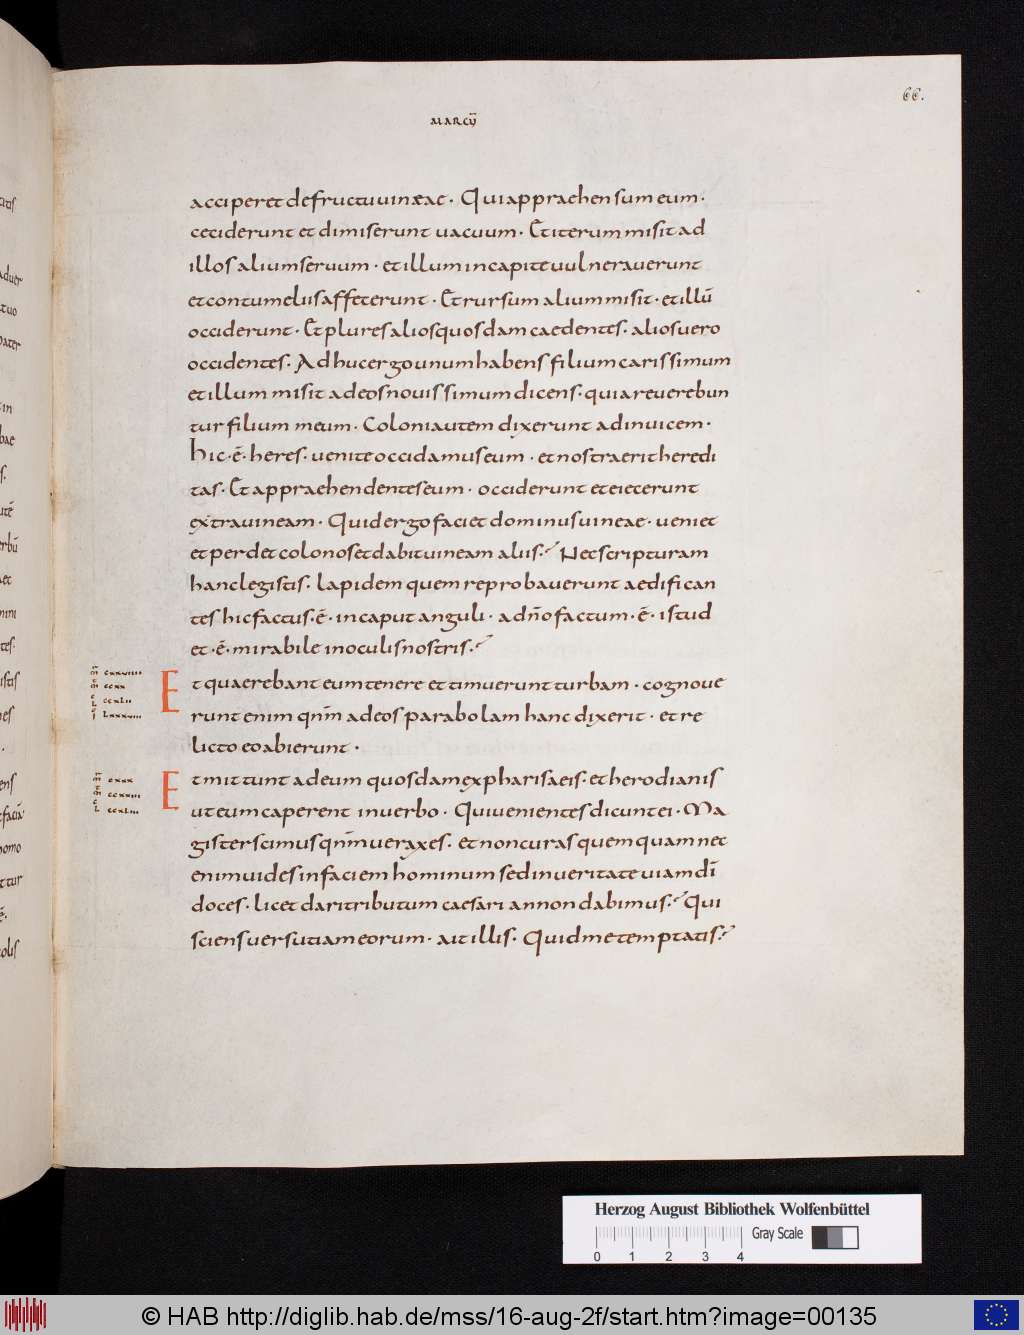 66.
MARCŨ
acciperet de fructu uineae · Qui appraehensum eum ·
ceciderunt et dimiserunt uacuum · Et iterum misit ad
illos alium seruum · et illum in capite uulnerauerunt
et contumeliis affecerunt · Et rursum alium misit · et illũ
occiderunt · Et plures alios quosdam caedentes · alios uero
occidentes · Adhuc ergo unum habens filium carissimum
et illum misit ad eos nouissimum dicens · quia reuerebun
tur filium meum · Coloni autem dixerunt ad inuicem ·
hic · ē · heres · uenite occidamus eum · et nostra erit heredi
tas · Et appraehendentes eum · occiderunt et eiecerunt
extra uineam · Quid ergo faciet dominus uineae · ueniet
et perdet colonos et dabit uineam aliis? Nec scripturam
hanc legistis · lapidem quem reprobauerunt aedifican
tes hic factus · ē · in caput anguli · a dño factum · ē · istud
et · ē · mirabile in oculis nostris?
Et quaerebant eum tenere et timuerunt turbam · cognoue
runt enim qnm̄ ad eos parabolam hanc dixerit · et re
licto eo abierunt ·
Et mittunt ad eum quosdam ex pharisaeis · et herodianis
ut eum caperent in uerbo · Qui uenientes dicunt ei · Ma
gister scimus qnm̄ uerax es · et non curas quemquam nec
enim uides in faciem hominum sed in ueritate uiam dī
doces · licet dari tributum caesari an non dabimus? Qui
sciens uersutiam eorum · ait illis · Quid me temptatis?
m̄ cxxuiiii
m̄ ccxx
L ccxlii
I lxxxuiii
m̄ cxxx
m̄ ccxxiii
L ccxliii
Herzog August Bibliothek Wolfenbüttel
0 1 2 3 4 Gray Scale
© HAB http://diglib.hab.de/mss/16-aug-2f/start.htm?image=00135